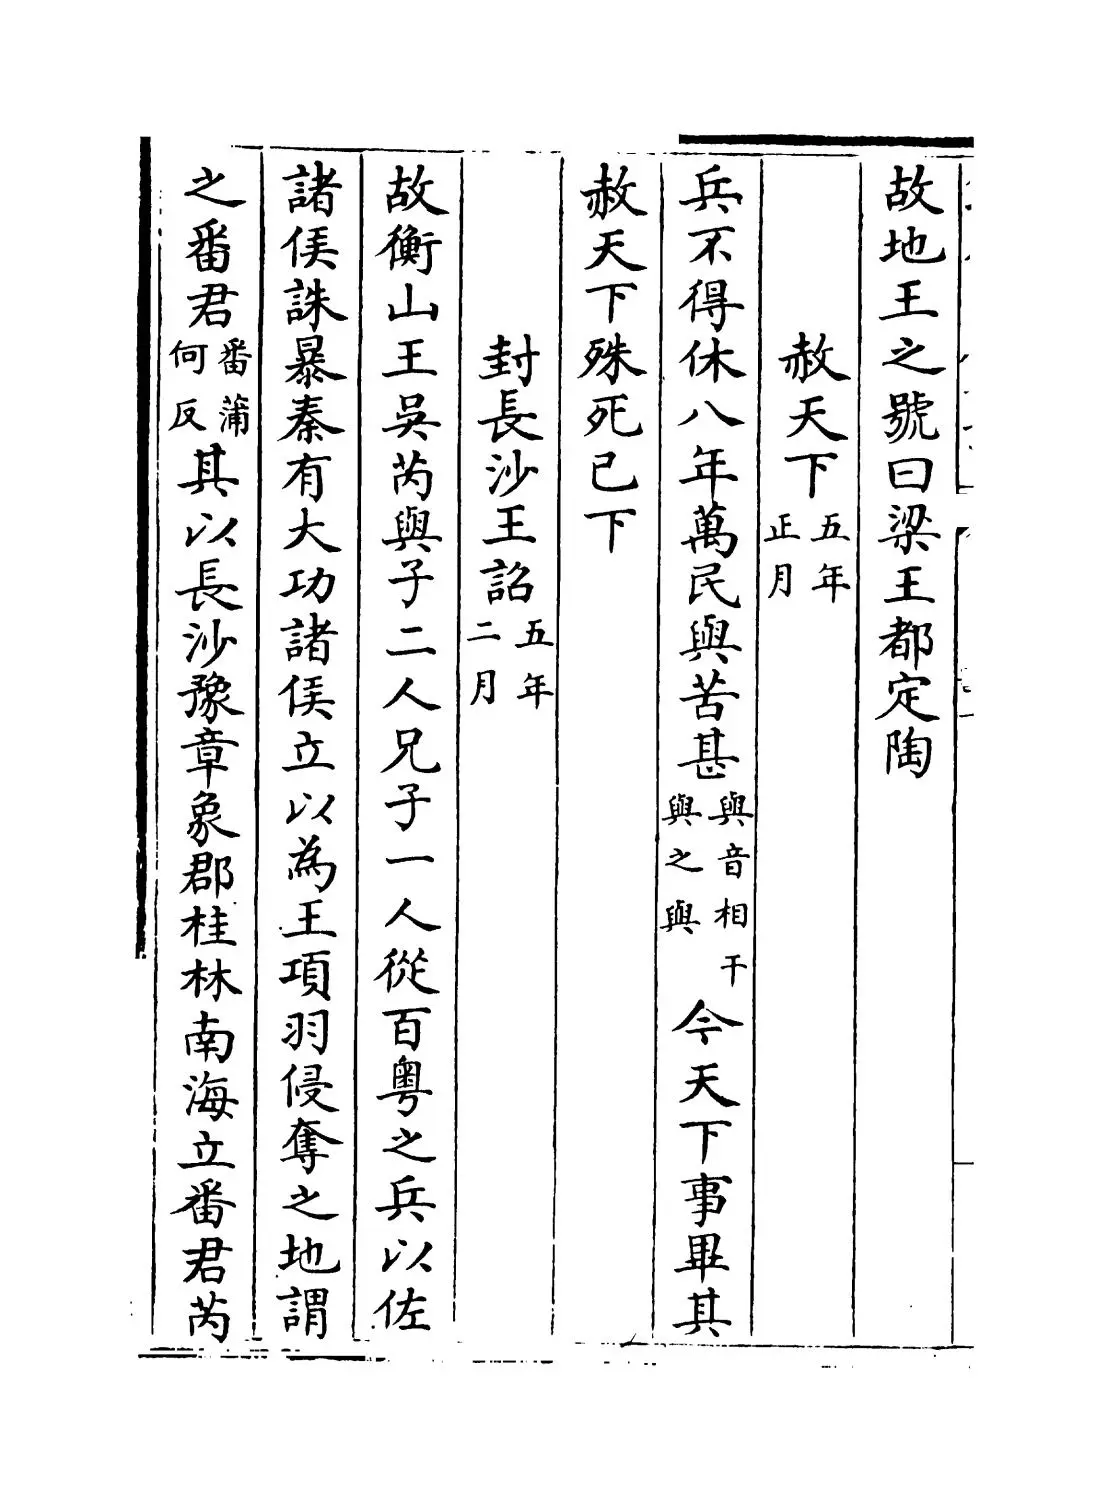 故地王之號曰梁王都定陶
赦天下五年正月
兵不得休八年萬民與苦甚與音相干與之與今天下事畢其
赦天下殊死已下
封長沙王詔五年二月
故衡山王吳芮與子二人兄子一人從百粵之兵以佐
諸侯誅暴秦有大功諸侯立以為王項羽侵奪之地謂
之番君番蒲何反其以長沙豫章象郡桂林南海立番君芮